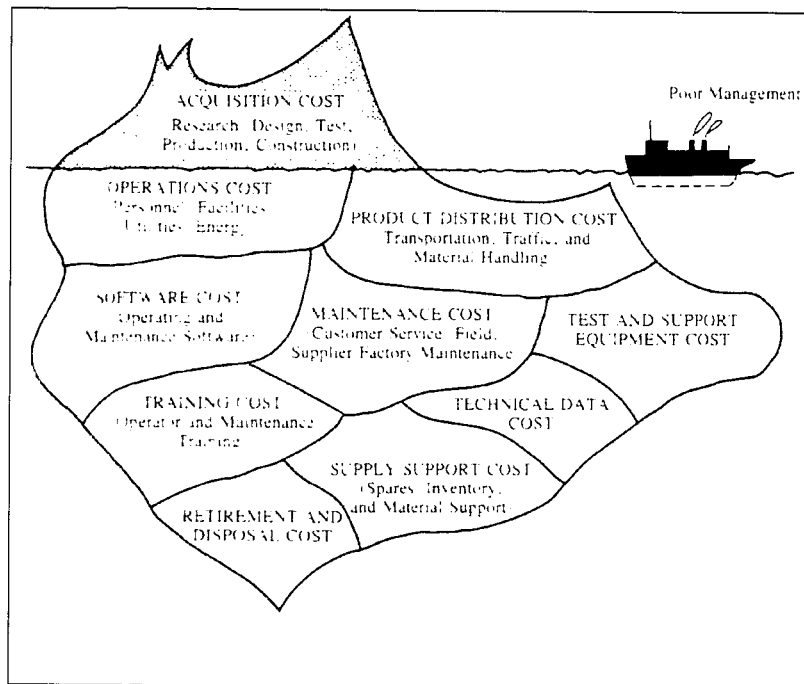 Poor Management
ACQUISITION COST
Research, Design, Test,
Production, Construction)
OPERATIONS COST
Personnel, Facilities
Utilities, Energy
PRODUCT DISTRIBUTION COST
Transportation, Traffic, and
Material Handling
SOFTWARE COST
Operating and
Maintenance Software)
MAINTENANCE COST
(Customer Service, Field,
Supplier Factory Maintenance
TEST AND SUPPORT
EQUIPMENT COST
TRAINING COST
Operator and Maintenance
Training
TECHNICAL DATA
COST
SUPPLY SUPPORT COST
(Spares, Inventory,
and Material Support)
RETIREMENT AND
DISPOSAL COST